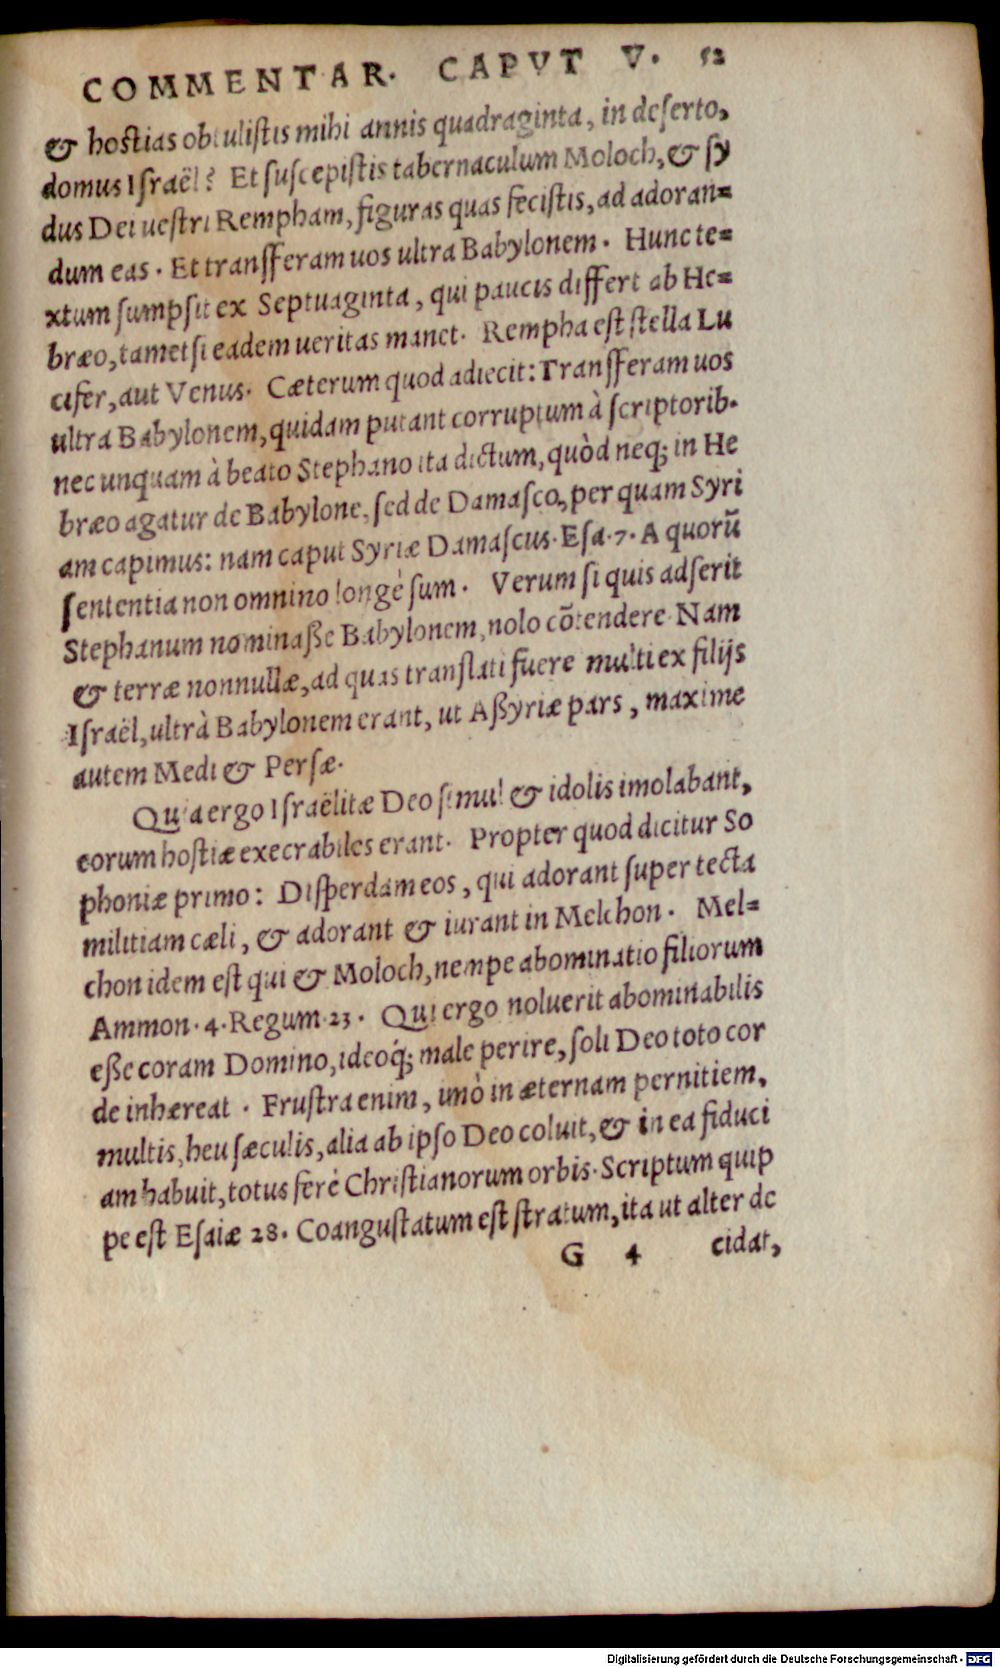 COMMENTAR. CAPVT V. 52
& hostias obtulistis mihi annis quadraginta, in deserto,
domus Israël? Et suscepistis tabernaculum Moloch, & sy
dus Dei uestri Rempham, figuras quas fecistis, ad adoran=
dum eas. Et transfferam uos ultra Babylonem. Hunc te=
xtum sumpsit ex Septuaginta, qui paucis differt ab He=
bræo, tametsi eadem ueritas manet. Rempha est stella Lu
cifer, aut Venus. Cæterum quod adiecit: Transfferam uos
ultra Babylonem, quidam putant corruptum à scriptorib.
nec unquam à beato Stephano ita dictum, quòd neq; in He
bræo agatur de Babylone, sed de Damasco, per quam Syri
am capimus: nam caput Syriæ Damascus. Esa. 7. A quorũ
sententia non omnino longè sum. Verum si quis adserit
Stephanum nominaße Babylonem, nolo cõtendere. Nam
& terræ nonnullæ, ad quas translati fuere multi ex filijs
Israël, ultrà Babylonem erant, ut Aßyriæ pars, maxime
autem Medi & Persæ.
Quia ergo Israëlitæ Deo simul & idolis imolabant,
eorum hostiæ execrabiles erant. Propter quod dicitur So
phoniæ primo: Disperdam eos, qui adorant super tecta
militiam cæli, & adorant & iurant in Melchon. Mel=
chon idem est qui & Moloch, nempe abominatio filiorum
Ammon. 4. Regum. 23. Qui ergo noluerit abominabilis
eße coram Domino, ideoq́; male perire, soli Deo toto cor
de inhæreat. Frustra enim, imò in æternam pernitiem,
multis, heu sæculis, alia ab ipso Deo coluit, & in ea fiduci
am habuit, totus ferè Christianorum orbis. Scriptum quip
pe est Esaiæ 28. Coangustatum est stratum, ita ut alter de
G 4 cidat,
Digitalisierung gefördert durch die Deutsche Forschungsgemeinschaft - DFG